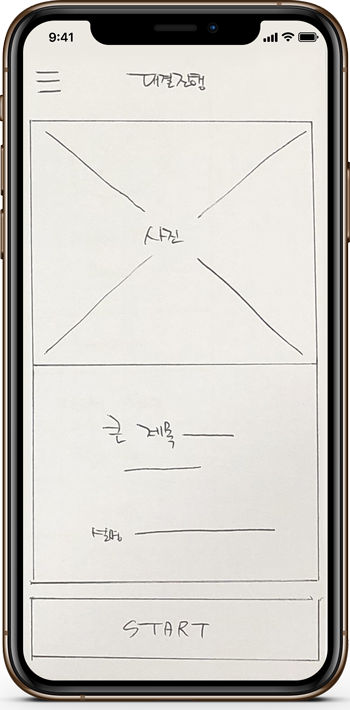 9:41
대결진행
사진
큰 제목
설명
START